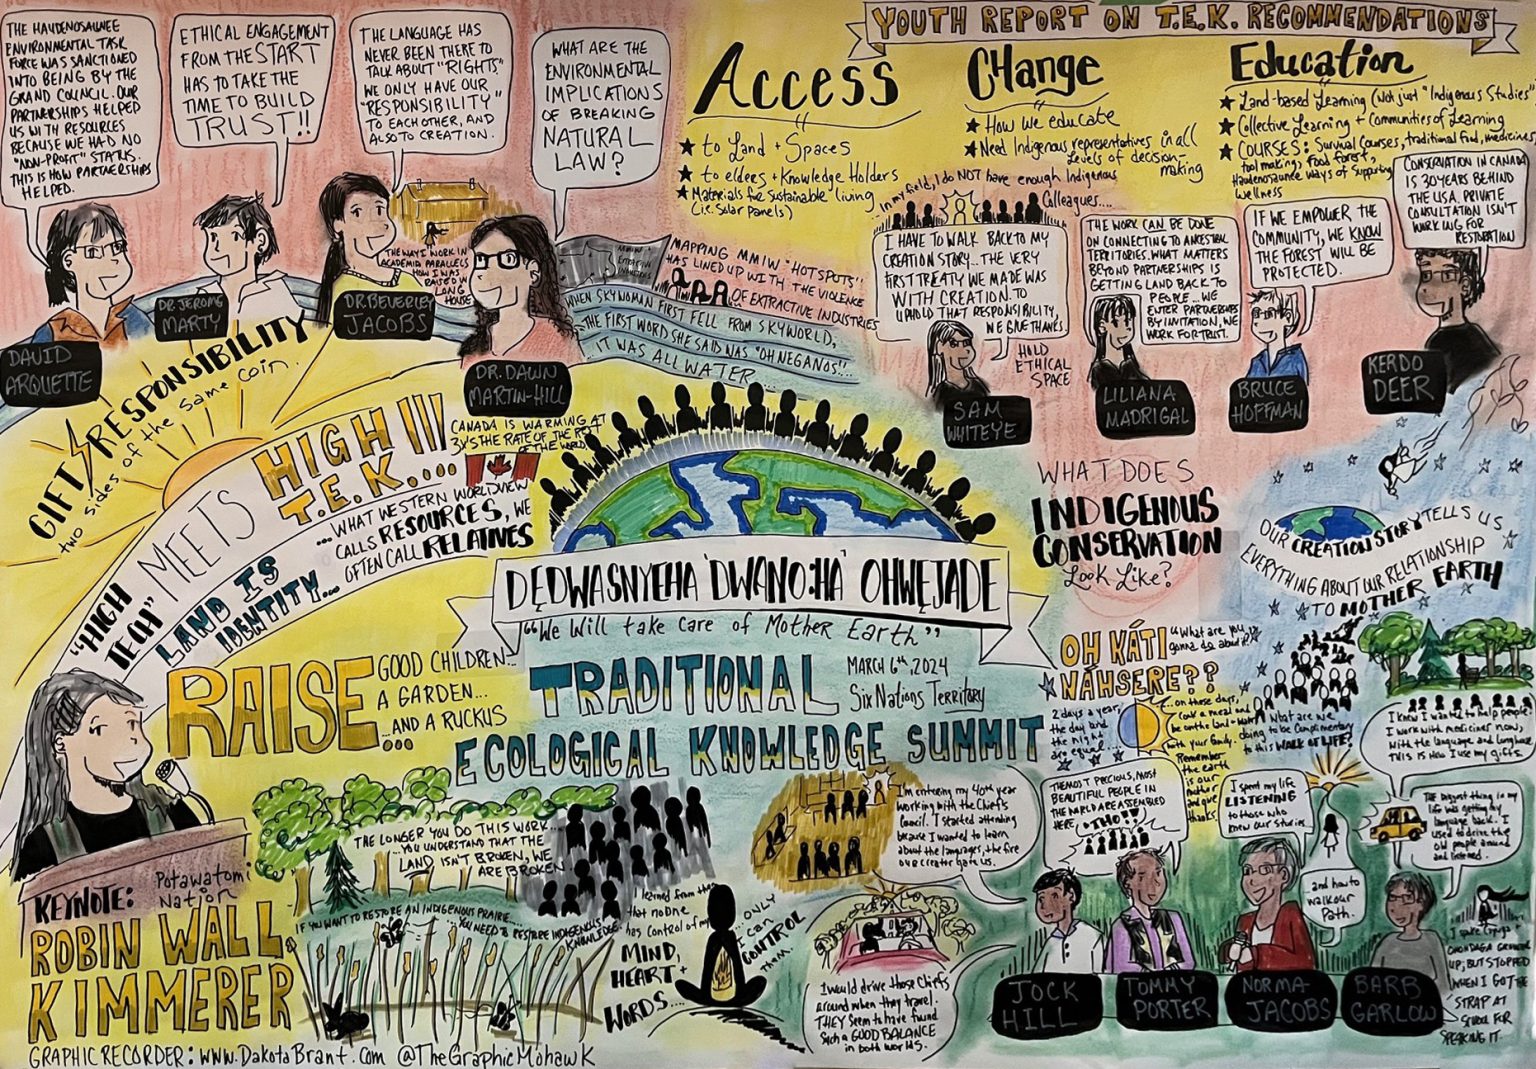 THE HAUDENOSAUNEE
ENVIRONMENTAL TASK
FORCE WAS SANCTIONED
INTO BEING BY THE
GRAND COUNCIL. OUR
PARTNERSHIPS HELPED
US WITH RESOURCES
BECAUSE WE HAD NO
"NON-PROFIT" STATUS.
THIS IS HOW PARTNERSHIPS
HELPED.
DAVID
ARQUETTE
ETHICAL ENGAGEMENT
FROM THE START
HAS TO TAKE THE
TIME TO BUILD
TRUST!!
DR. JEROME
MARTY
THE LANGUAGE HAS
NEVER BEEN THERE TO
TALK ABOUT "RIGHTS."
WE ONLY HAVE OUR
"RESPONSIBILITY"
TO EACH OTHER, AND
ALSO TO CREATION.
DR. BEVERLEY
JACOBS
THE WAY I WORK IN
ACADEMIA PARALLELS
HOW I WAS
RAISED IN
LONG
HOUSE
WHAT ARE THE
ENVIRONMENTAL
IMPLICATIONS
OF BREAKING
NATURAL
LAW?
DR. DAWN
MARTIN-HILL
MAPPING MMIW "HOTSPOTS"
HAS LINED UP WITH THE VIOLENCE
OF EXTRACTIVE INDUSTRIES
WHEN SKYWOMAN FIRST FELL FROM SKYWORLD,
THE FIRST WORD SHE SAID WAS "OH NEGANOS"...
...IT WAS ALL WATER...
YOUTH REPORT ON T.E.K. RECOMMENDATIONS
Access
★ to Land + Spaces
★ to elders + Knowledge Holders
★ Materials for Sustainable living
(i.e. Solar panels)
CHange
★ How we educate
★ Need Indigenous representatives in all
levels of decision-
making
Education
★ Land-based Learning (Not just "Indigenous Studies")
★ Collective Learning + Communities of Learning
★ COURSES: Survival Courses, traditional food, medicines,
tool making, Food forest,
Haudenosaunee Ways of Supporting
wellness
in my field, I do NOT have enough Indigenous
Colleagues....
I HAVE TO WALK BACK TO MY
CREATION STORY... THE VERY
FIRST TREATY WE MADE WAS
WITH CREATION. TO
UPHOLD THAT RESPONSIBILITY,
WE GIVE THANKS.
HOLD
ETHICAL
SPACE
SAM
WHITEYE
THE WORK CAN BE DONE
ON CONNECTING TO ANCESTRAL
TERRITORIES. WHAT MATTERS
BEYOND PARTNERSHIPS IS
GETTING LAND BACK TO
PEOPLE... WE
ENTER PARTNERSHIPS
BY INVITATION, WE
WORK FOR TRUST.
LILIANA
MADRIGAL
IF WE EMPOWER THE
COMMUNITY, WE KNOW
THE FOREST WILL BE
PROTECTED.
BRUCE
HOFFMAN
CONSERVATION IN CANADA
IS 30 YEARS BEHIND
THE USA. PRIVATE
CONSULTATION ISN'T
WORKING FOR
RESTORATION
KERDO
DEER
GIFT/RESPONSIBILITY
two sides of the same coin.
"HIGH
TECH" MEETS
HIGH
T.E.K....
LAND IS
IDENTITY...
...WHAT WESTERN WORLDVIEW
CALLS RESOURCES, WE
OFTEN CALL RELATIVES
CANADA IS WARMING AT
3X'S THE RATE OF THE REST
OF THE WORLD
DĘDWASNYEHA 'DWANO:HA' OHWĘJADE
"We Will take care of Mother Earth"
TRADITIONAL
ECOLOGICAL KNOWLEDGE SUMMIT
MARCH 6th, 2024
Six Nations Territory
WHAT DOES
INDIGENOUS
CONSERVATION
Look Like?
OUR CREATION STORY TELLS US
EVERYTHING ABOUT OUR RELATIONSHIP
TO MOTHER EARTH
RAISE
GOOD CHILDREN...
A GARDEN...
...AND A RUCKUS
KEYNOTE: Potawatomi
Nation
ROBIN WALL
KIMMERER
THE LONGER YOU DO THIS WORK...
...YOU UNDERSTAND THAT THE
LAND ISN'T BROKEN, WE
ARE BROKEN
IF YOU WANT TO RESTORE AN INDIGENOUS PRAIRIE....
...YOU NEED TO RESTORE INDIGENOUS
KNOWLEDGE.
I learned from that
that no one
has control of my
MIND,
HEART +
WORDS....
...ONLY
I can
CONTROL
them.
I'm entering my 40th year
working with the Chief's
Council. I started attending
because I wanted to learn
about the languages, the fire
our creator gave us.
I would drive those Chiefs
around when they travel.
THEY Seem to have found
Such a GOOD BALANCE
in both worlds.
JOCK
HILL
THE MOST PRECIOUS, MOST
BEAUTIFUL PEOPLE IN
THE WORLD ARE ASSEMBLED
HERE,
TOMMY
PORTER
OH KÁTI
NÁHSERE??
"What are you
gonna do about it?"
2 days a year,
the day and
the night
are equal...
...on those days,
cook a meal and
be on the land
with your family.
Remember
the earth
is our
mother
and give
thanks.
What are we
doing to be complimentary
to this WORK OF LIFE?
I spent my life
LISTENING
to those who
knew our stories.
and how to
walk our
Path.
NORMA
JACOBS
I knew I wanted to help people.
I work with medicines now,
with the language and
THIS is How I use my gifts.
THE Biggest thing in my
life was getting my
language back. I
used to drive the
old people around
and listened.
BARB
GARLOW
I spoke Cayuga
ONONDAGA GROWING
UP; BUT STOPPED
WHEN I GOT THE
STRAP AT
SCHOOL FOR
SPEAKING IT.
GRAPHIC RECORDER: www.DakotaBrant.Com @TheGraphicMohawk